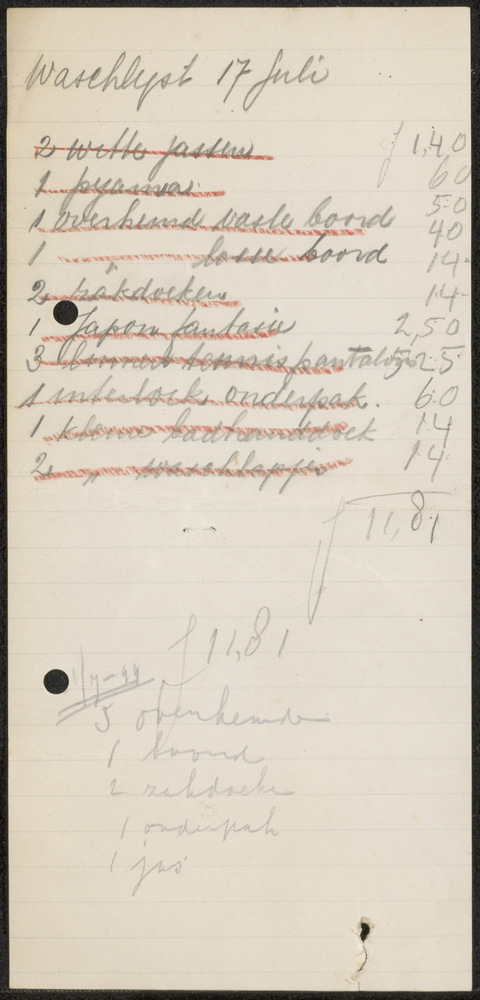 Waschlyst 17 Juli
2 witte jassen f 1,40
1 pyama 60
1 overhemd vaste boord 50
1 " losse boord 40
14
2 zakdoeken 14
1 Japon fantasie 2,50
3 linnen tennis pantalons 5,25
1 interlock onderpak. 60
1 kleine badhanddoek 14
2 " waschlapje 14
f 11,81
f 11,81
1/7-44
5 overhemden
1 boord
2 zakdoeke
1 onderpak
1 jas